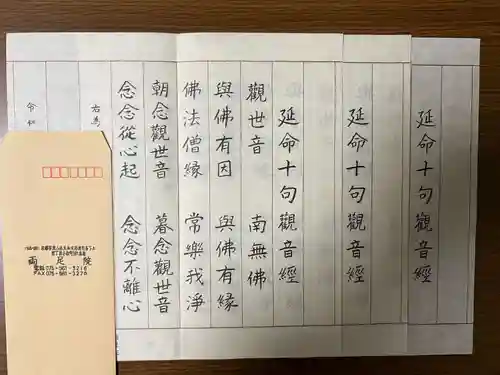 延命十句觀音經
延命十句觀音經
延命十句觀音經
觀世音 南無佛
與佛有因 與佛有緣
佛法僧緣 常樂我淨
朝念觀世音 暮念觀世音
念念從心起 念念不離心
右爲
令和
両足院
電話 075-561-3216
FAX 075-561-3270